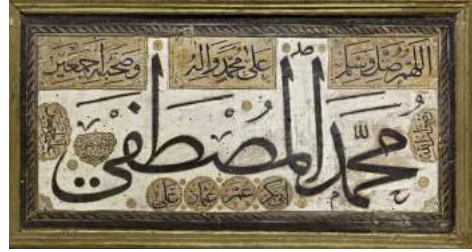 اللهم صل وسلم
على محمد واله
وصحبه اجمعين
محمد المصطفى
ابي بكر عمر عثمان علي